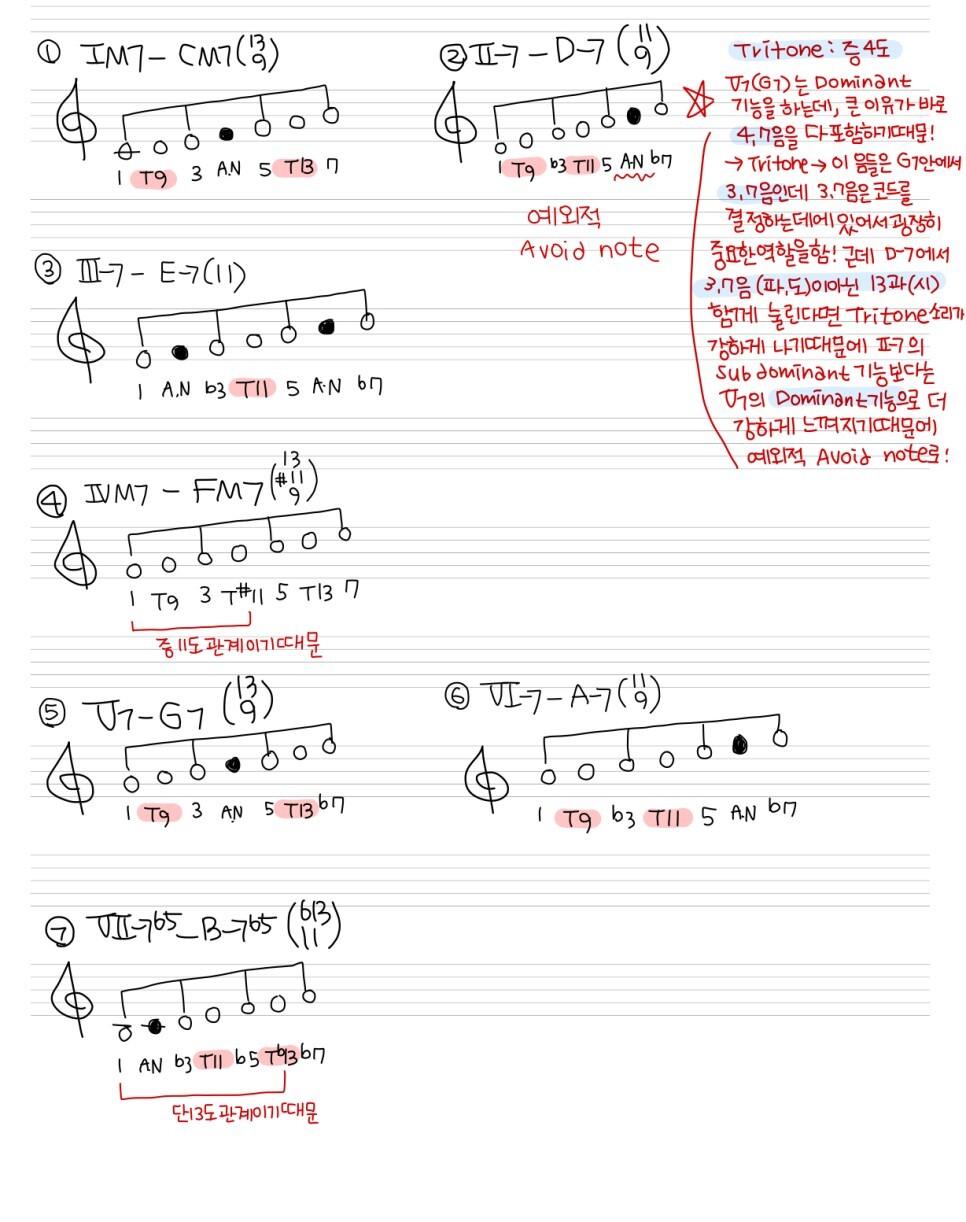 ① IM7 - CM7(13 9)
1 T9 3 A.N 5 T13 7
② II-7 - D-7(11 9)
1 T9 b3 T11 5 A.N b7
예외적
Avoid note
Tritone : 증4도
☆ V7(G7)는 Dominant
기능을 하는데, 큰 이유가 바로
4,7음을 다 포함하기때문!
→ Tritone → 이 음들은 G7안에서
3,7음인데 3,7음은 코드를
결정하는데에 있어서 굉장히
중요한역할을함! 근데 D-7에서
3,7음(파,도)이아닌 13과(시)
함께 눌린다면 Tritone소리가
강하게 나기때문에 II-7의
Sub dominant 기능보다는
V7의 Dominant기능으로 더
강하게 느껴지기때문에
예외적 Avoid note로!
③ III-7 - E-7(11)
1 A.N b3 T11 5 A.N b7
④ IVM7 - FM7(13 #11 9)
1 T9 3 T#11 5 T13 7
증11도관계이기때문
⑤ V7-G7 (13 9)
1 T9 3 A.N 5 T13 b7
⑥ VI-7-A-7(11 9)
1 T9 b3 T11 5 A.N b7
⑦ VII-7b5_B-7b5 (b13 11)
1 AN b3 T11 b5 Tb13 b7
단13도관계이기때문